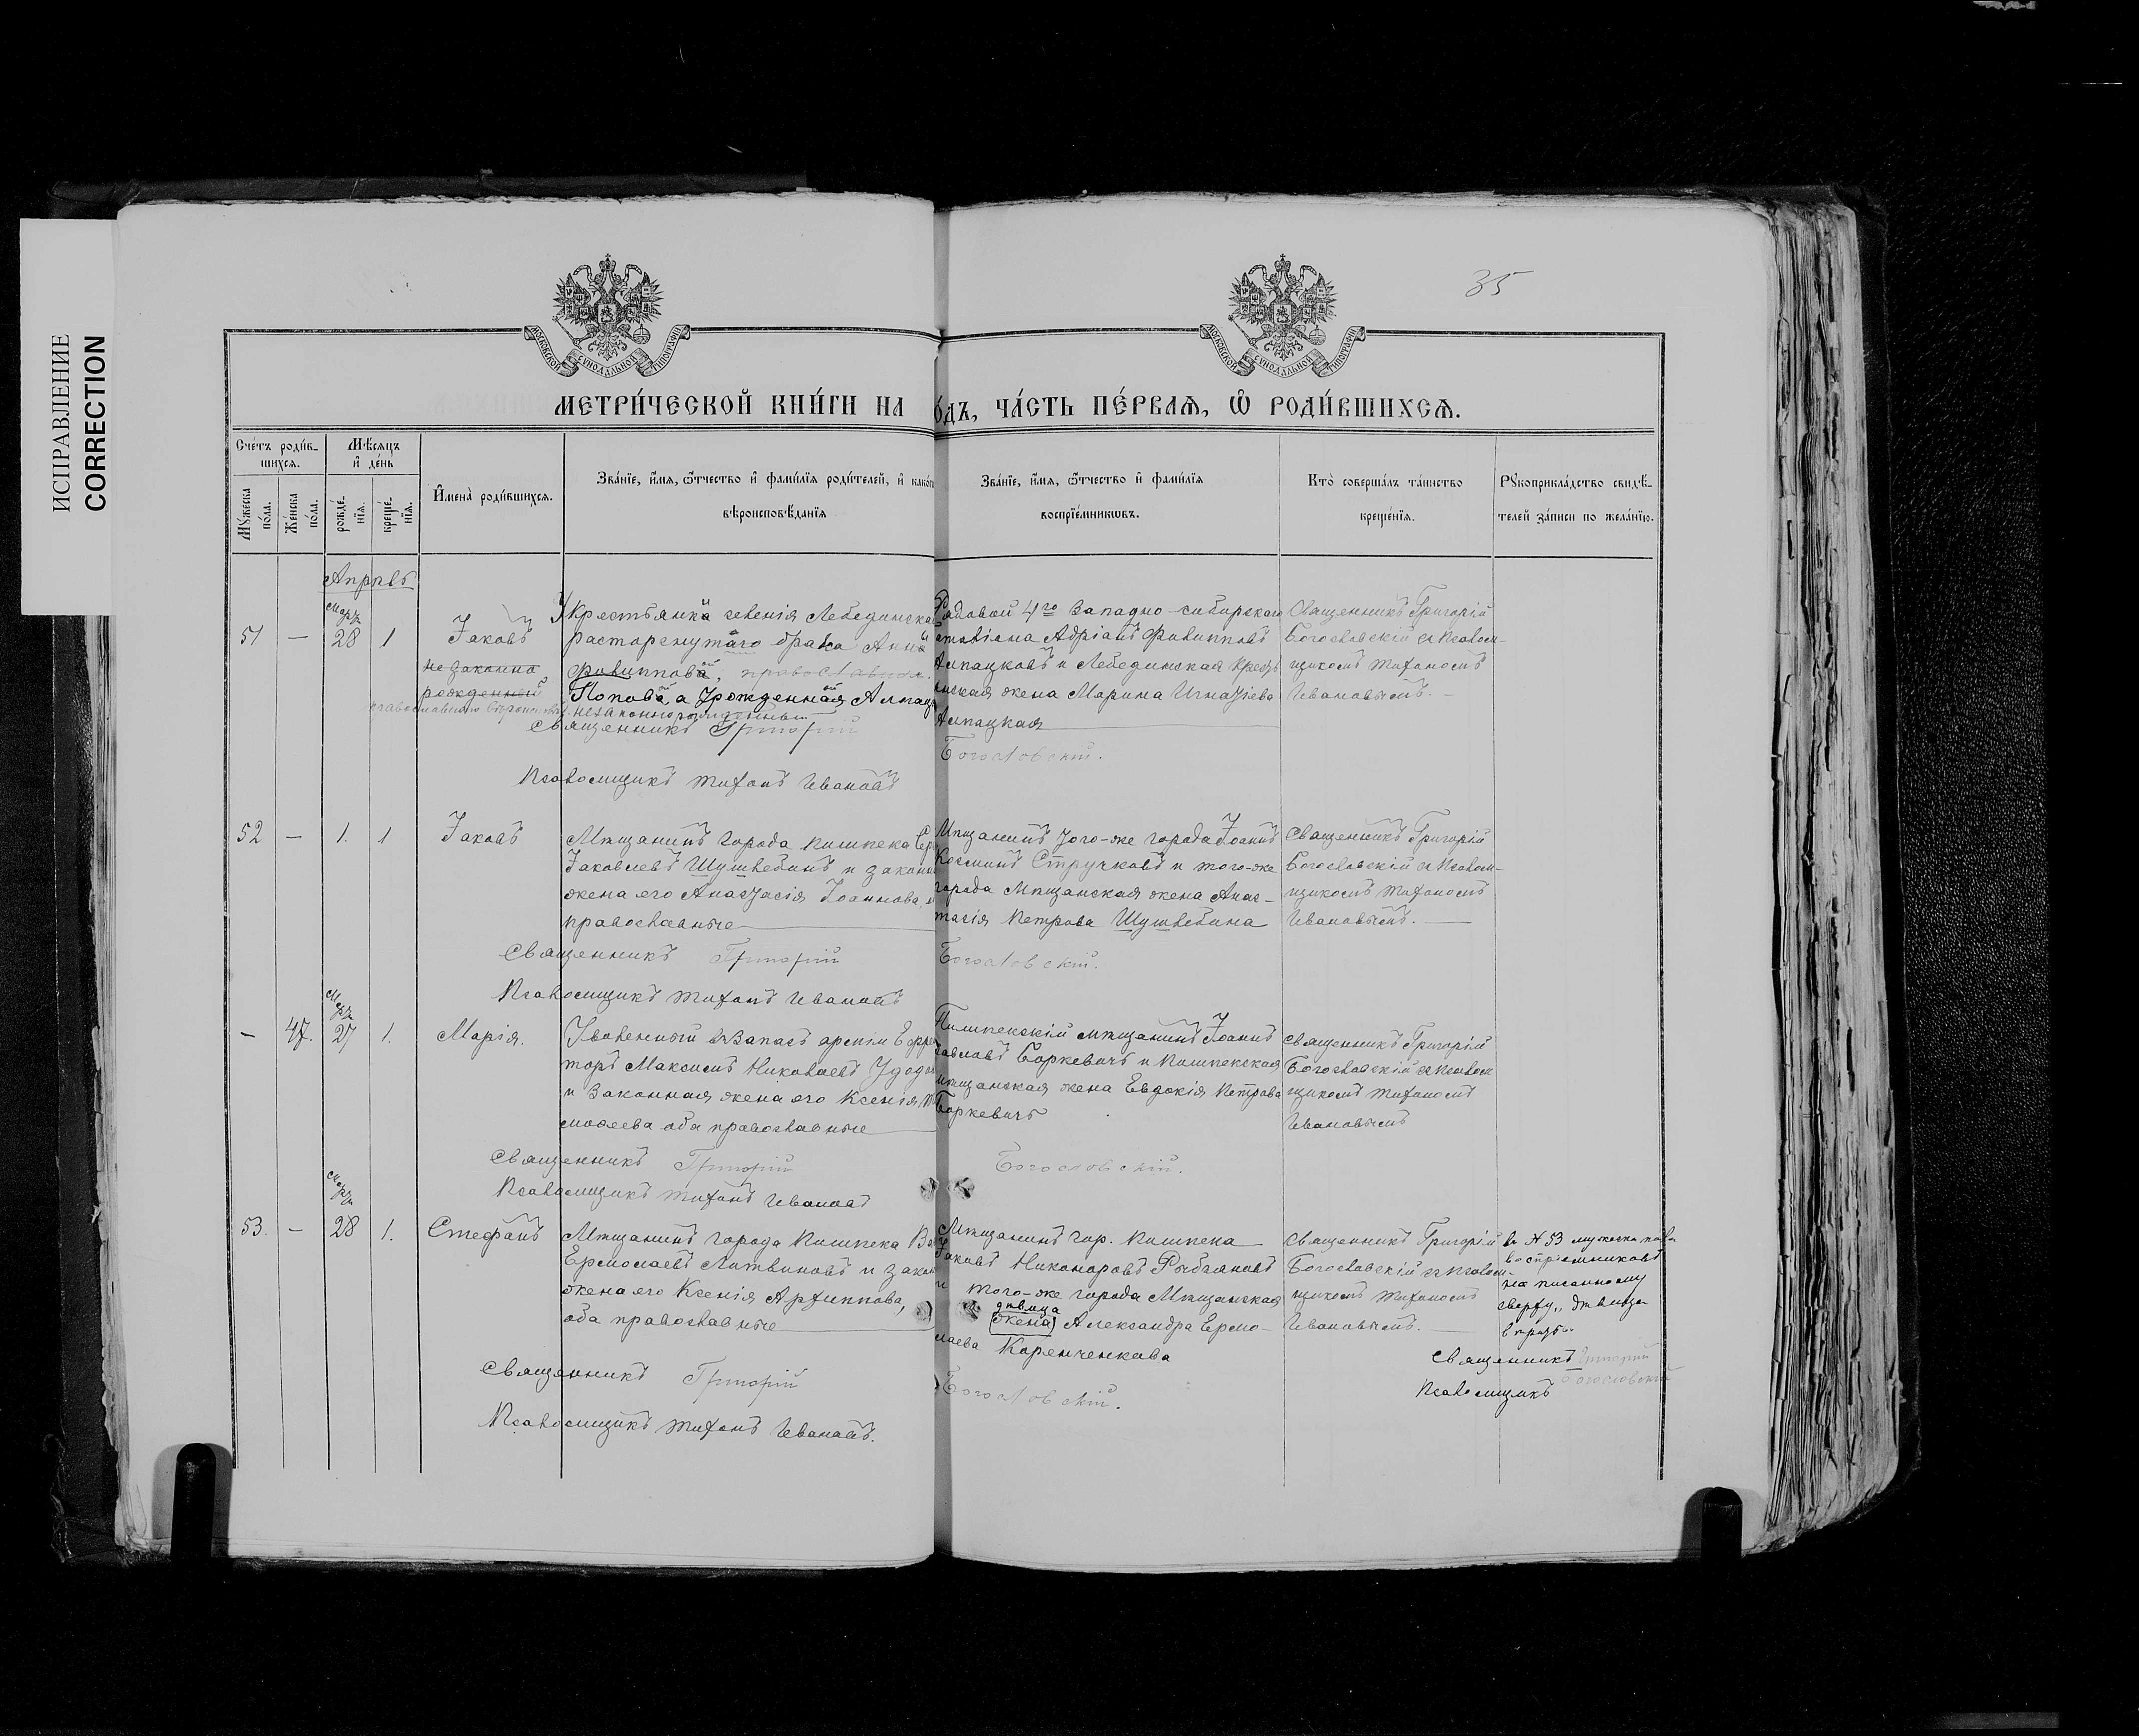 ИСПРАВЛЕНИЕ
CORRECTION
35
МОСКОВСКОЙ СУНОДАЛЬНОЙ ТИПОГРАФІИ
МОСКОВСКОЙ СУНОДАЛЬНОЙ ТИПОГРАФІИ
МЕТРИ́ЧЕСКОЙ КНИ́ГИ НА О́ДЪ, ЧА́СТЬ ПЕ́РВАѦ, Ѿ РОДИ́ВШИХСѦ.
Сче́тъ роди́в-
шихсѧ.
Мѣ́сѧцъ
и҆ де́нь
Мꙋ́жеска
по́ла.
Же́нска
по́ла.
рожде́-
нїѧ.
креще́-
нїѧ.
И҆мена̀ роди́вшихсѧ.
Зва́нїе, и҆́мѧ, ѻ҆́тчество и҆ фами́лїѧ роди́телей, и҆ како́г
вѣроисповѣ́данїѧ
Зва́нїе, и҆́мѧ, ѻ҆́тчество и҆ фами́лїѧ
воспрїе́мникѡвъ.
Кто̀ соверша́лъ та́инство
креще́нїѧ.
Рꙋкоприкла́дство свидѣ́-
телей за́писи по жела́нїю.
Апрѣль
Марта
51 — 28 1 Іаковъ
не законно
рожденный
Крестьянка селенія Лебединска
расторгнутаго брака Анна
Филиппова, православн.
Попова, а урожденная Алпац
незаконнорожденный
Рядовой 4го Западно-сибирскаго
баталіона Адріанъ Филипповъ
Алпацковъ и Лебединская крест
янская жена Марина Игнатіева
Алпацкая
Священникъ Григорій
Богословскій съ псалом-
щикомъ Тихономъ
Ивановымъ.
Священникъ Григорій Богословскій.
Псаломщикъ Тихонъ Ивановъ
52 — 1. 1 Іаковъ
Мѣщанинъ города Пишпека Сер
Іаковлевъ Шушлебинъ и законн
жена его Анастасія Іоаннова,
православные
Мѣщанинъ того-же города Іоаннъ
Косминъ Стручковъ и того-же
города мѣщанская жена Анас-
тасія Петрова Шушлебина
Священникъ Григорій
Богословскій съ псалом-
щикомъ Тихономъ
Ивановымъ.
Священникъ Григорій Богословскій.
Псаломщикъ Тихонъ Ивановъ
Марта
— 47. 27 1. Марія.
Уволенный въ запасъ арміи Ефре
торъ Максимъ Николаевъ Удодо
и законная жена его Ксенія
моѳеева оба православные
Пишпекскій мѣщанинъ Іоаннъ
Павловъ Боркевичъ и Пишпекская
мѣщанская жена Евдокія Петрова
Боркевичъ
Священникъ Григорій
Богословскій съ псалом
щикомъ Тихономъ
Ивановымъ
Священникъ Григорій Богословскій.
Псаломщикъ Тихонъ Ивановъ
Марта
53. — 28 1. Стефанъ
Мѣщанинъ города Пишпека Ва
Ермолаевъ Литвиновъ и закон
жена его Ксенія Архиппова,
оба православные
Мѣщанинъ гор. Пишпека
Іаковъ Никаноровъ Рыбалновъ
и того-же города Мѣщанская
дѣвица
(жена) Александра Ермо-
лаева Коренченкова
Священникъ Григорій
Богословскій съ псалом-
щикомъ Тихономъ
Ивановымъ.
въ № 53 мужска пола
воспріемниковъ
на писанному
сверху „дѣвица
вѣрить
Священникъ Григорій
Богословскій
Псаломщикъ
Священникъ Григорій Богословскій.
Псаломщикъ Тихонъ Ивановъ.